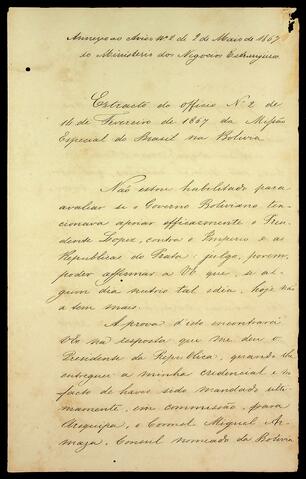 Annexo ao Aviso Nº 2 de 2 de Maio de 1867
do Ministerio dos Negocios Estrangeiros
Extracto do officio Nº 2 de
16 de Fevereiro de 1867 da Missão
Especial do Brasil na Bolivia
Não estou habilitado para
avaliar se o Governo Boliviano ten-
cionava apoiar efficazmente o Presi-
dente Lopez, contra o Imperio e as
Republicas do Prata: julgo, porem,
poder affirmar a VEx que, se al-
gum dia nutrio tal idéa, hoje não
a tem mais.
A prova d'isto encontrará
VEx na resposta que me deu o
Presidente da Republica, quando lhe
entreguei a minha credencial e no
facto de haver sido mandado ulti-
mamente, em commissão, para
Arequipa, o Coronel Miguel Ar-
maza, Consul nomeado da Bolivia